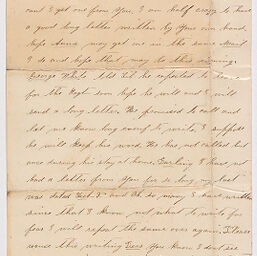 can't I get one from You, I am half crazy to have
a good long letter written by Your own hand.
hope Anna may get me in the same Mail
I do and hope that may be this evening.
George White told Lil he expected to leave
for the Neptn soon hope he will and I will
send a long letter. He promised to call and
let me know long enough to write, I suppose
he will Keep his word. He has not called but
once during his stay at home. Darling I have not
had a letter from You for so long my last
was dated Oct and Oh so many I have written
since that I know not what to write for
fear I will repeat the same over again.
excuse this writing Dear You know I don't see